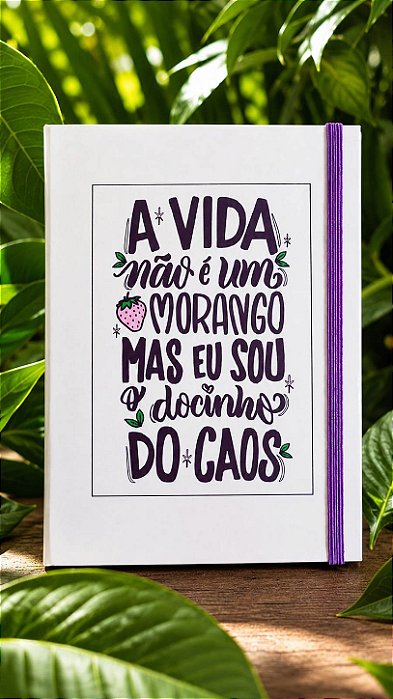 A VIDA
não é um
MORANGO
MAS EU SOU
o docinho
DO CAOS